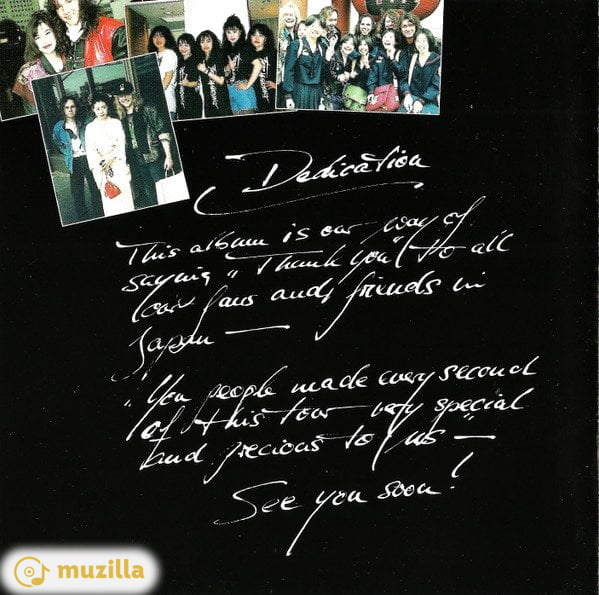 Dedication
This album is our way of
saying "Thank you" to all
our fans and friends in
Japan —
"You people made every second
of this tour very special
and precious to us" —
See you soon!
muzilla